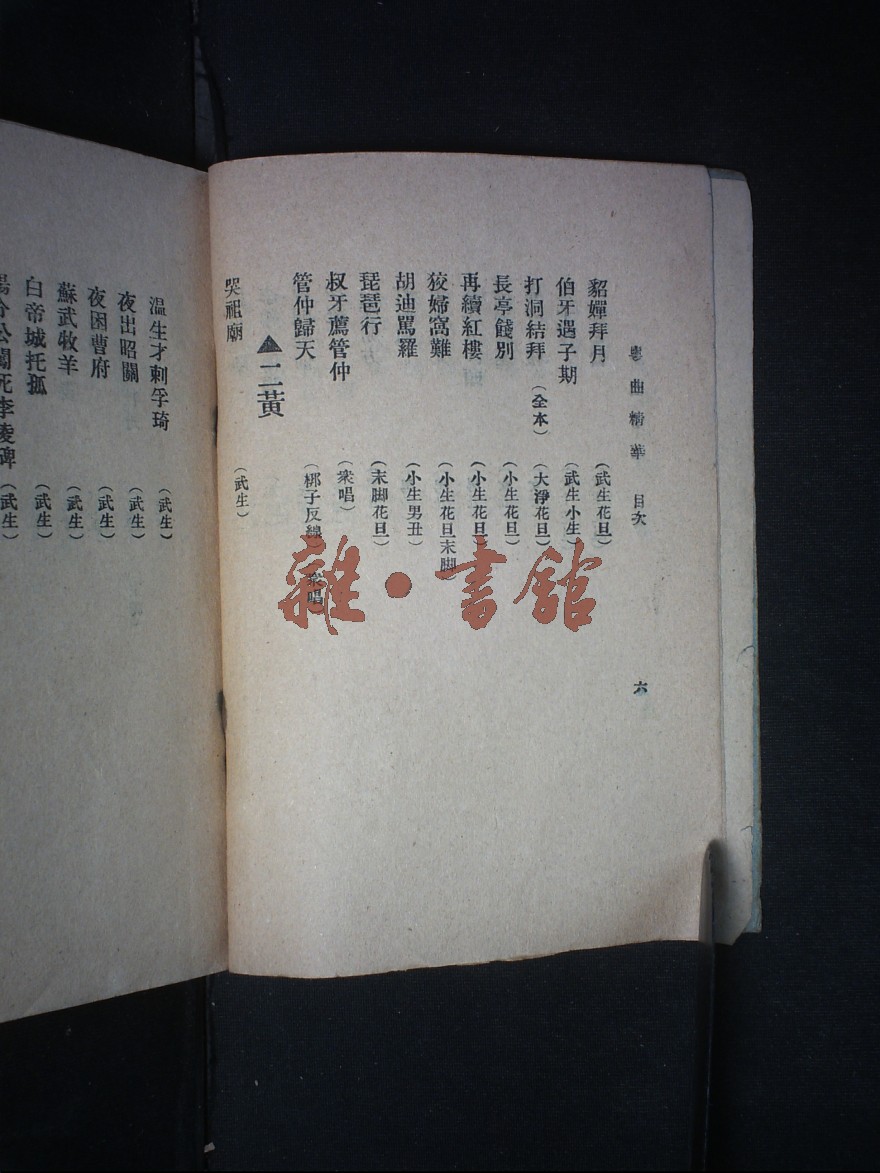 粵曲精華 目次 六
貂嬋拜月 （武生花旦）
伯牙遇子期 （武生小生）
打洞結拜（全本） （大淨花旦）
長亭餞別 （小生花旦）
再續紅樓 （小生花旦）
狡婦窩難 （小生花旦末脚）
胡迪罵羅 （小生男丑）
琵琶行 （末脚花旦）
叔牙薦管仲 （衆唱）
管仲歸天 （梆子反線）（衆唱）
▲二黃
哭祖廟 （武生）
温生才刺孚琦 （武生）
夜出昭關 （武生）
夜困曹府 （武生）
蘇武牧羊 （武生）
白帝城托孤 （武生）
楊令公鬭死李陵碑 （武生）
雜·書館